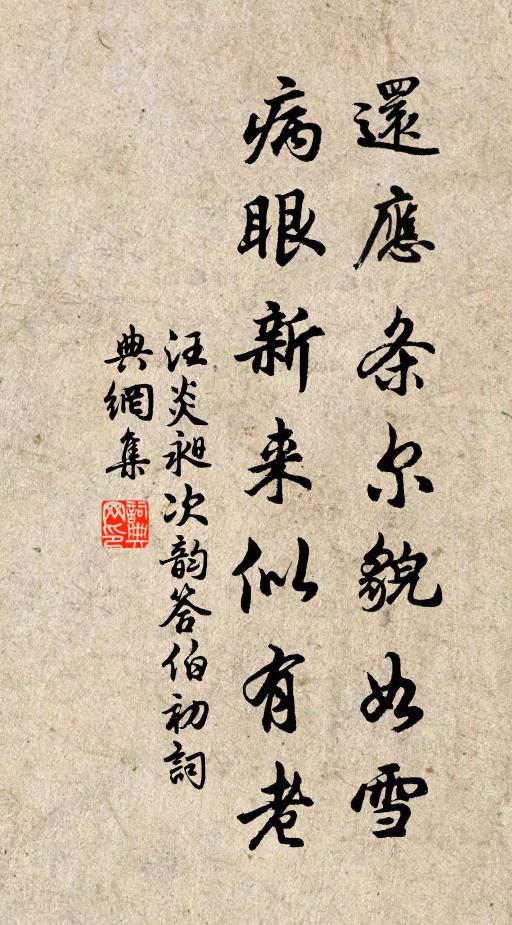 還應条尔貌如雪
病眼新来似有老
汪炎昶次韵答伯初詞
典網集
詞典
网印